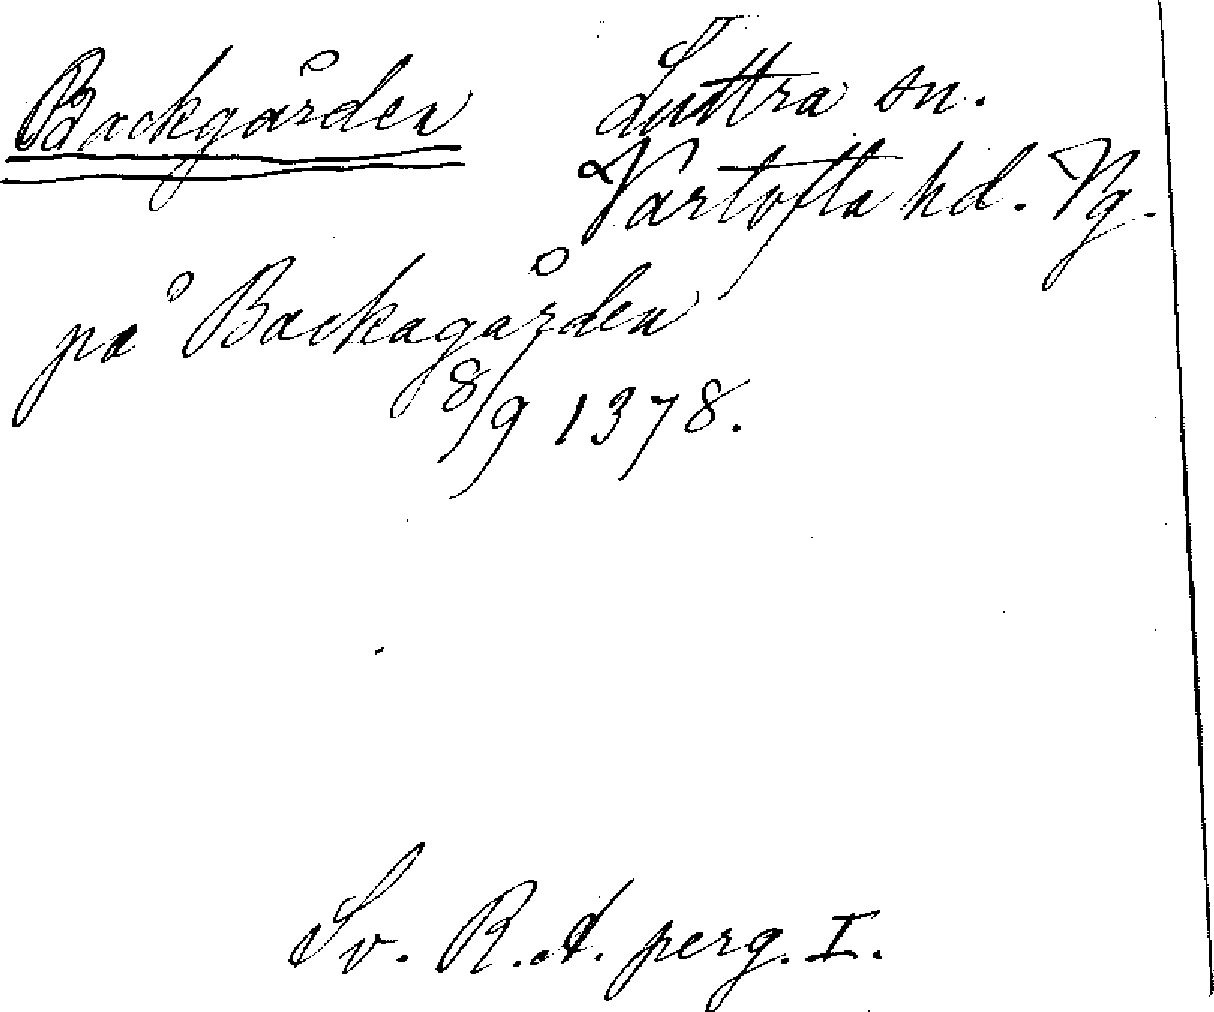 Backgården Luttra sn.
Vartofta hd. Vg.
på Backagården
8/9 1378.
Sv. R.A. perg. I.